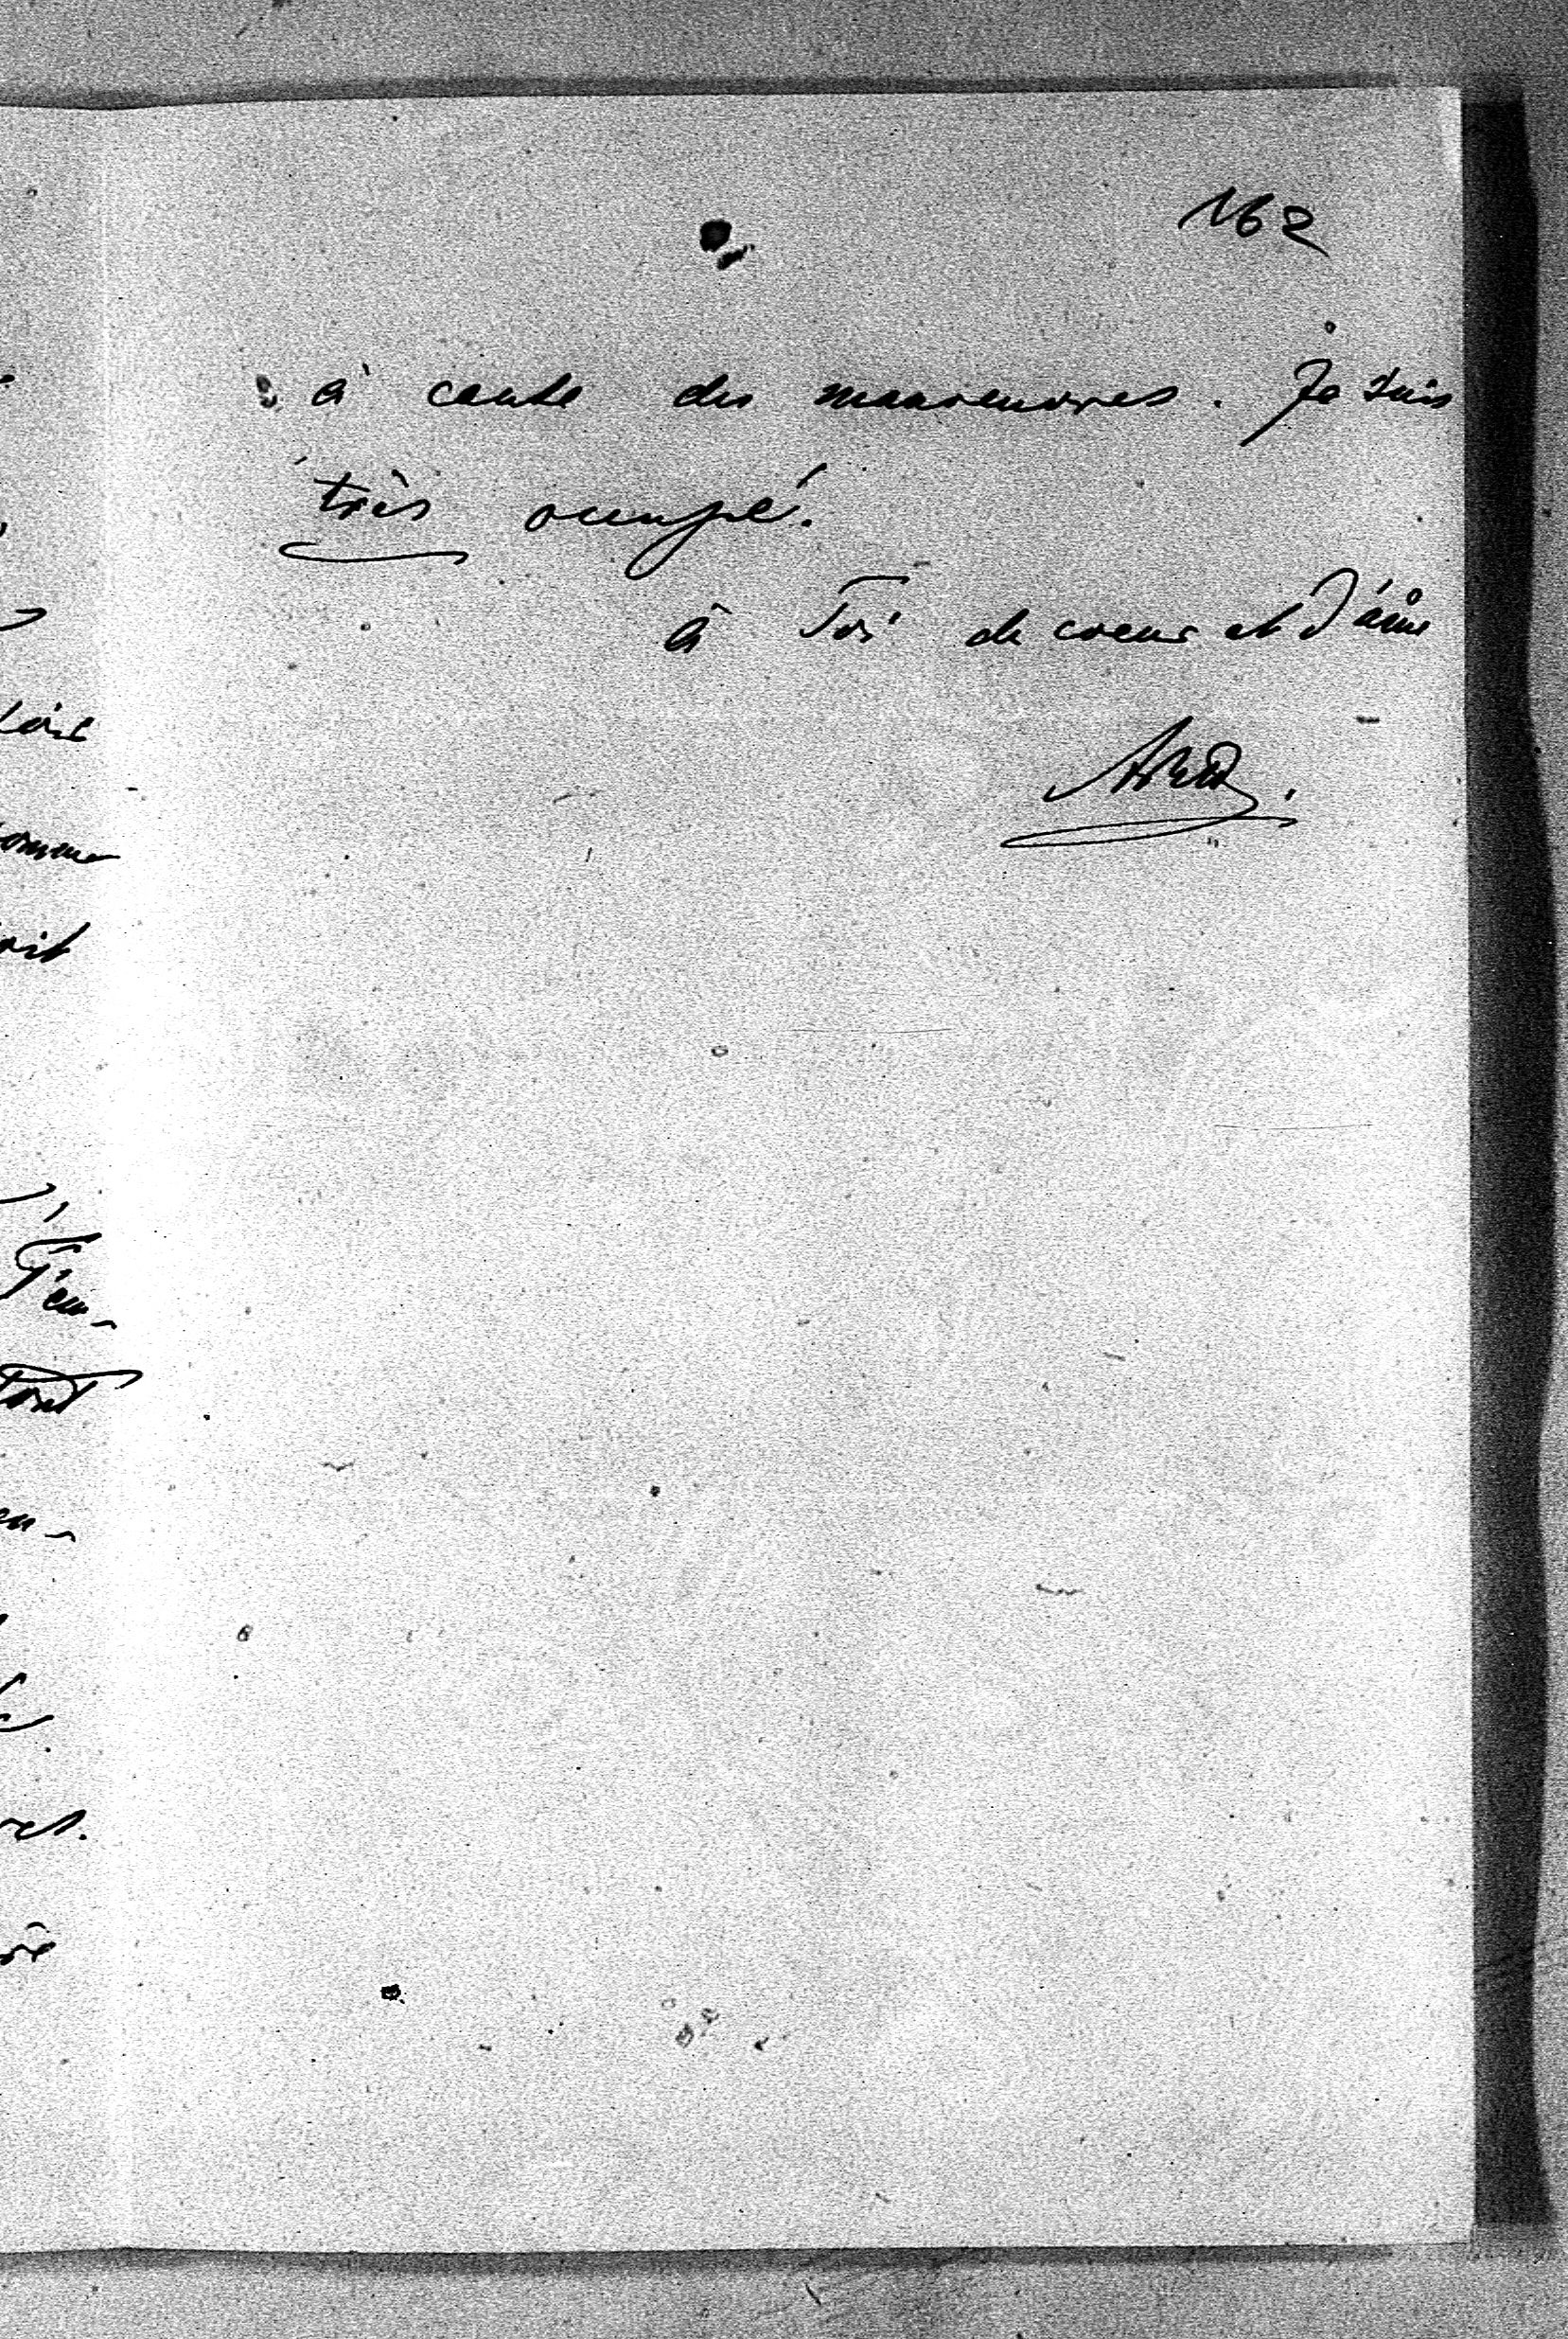 162
à cause des manoeuvres. Je suis
très occupé.
à Toi de coeur et d'âme